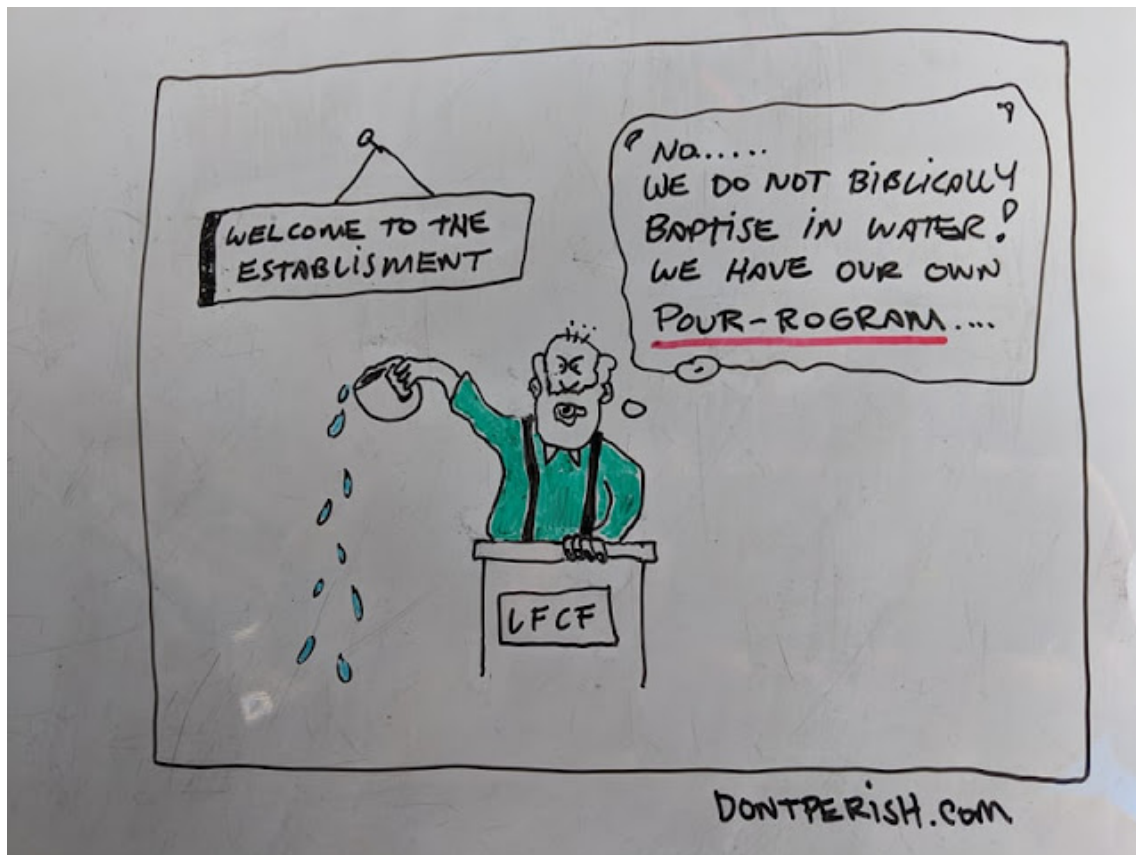 WELCOME TO THE
ESTABLISMENT
No.....
WE DO NOT BIBLICALLY
BAPTISE IN WATER!
WE HAVE OUR OWN
POUR-ROGRAM....
LFCF
DONTPERISH.COM